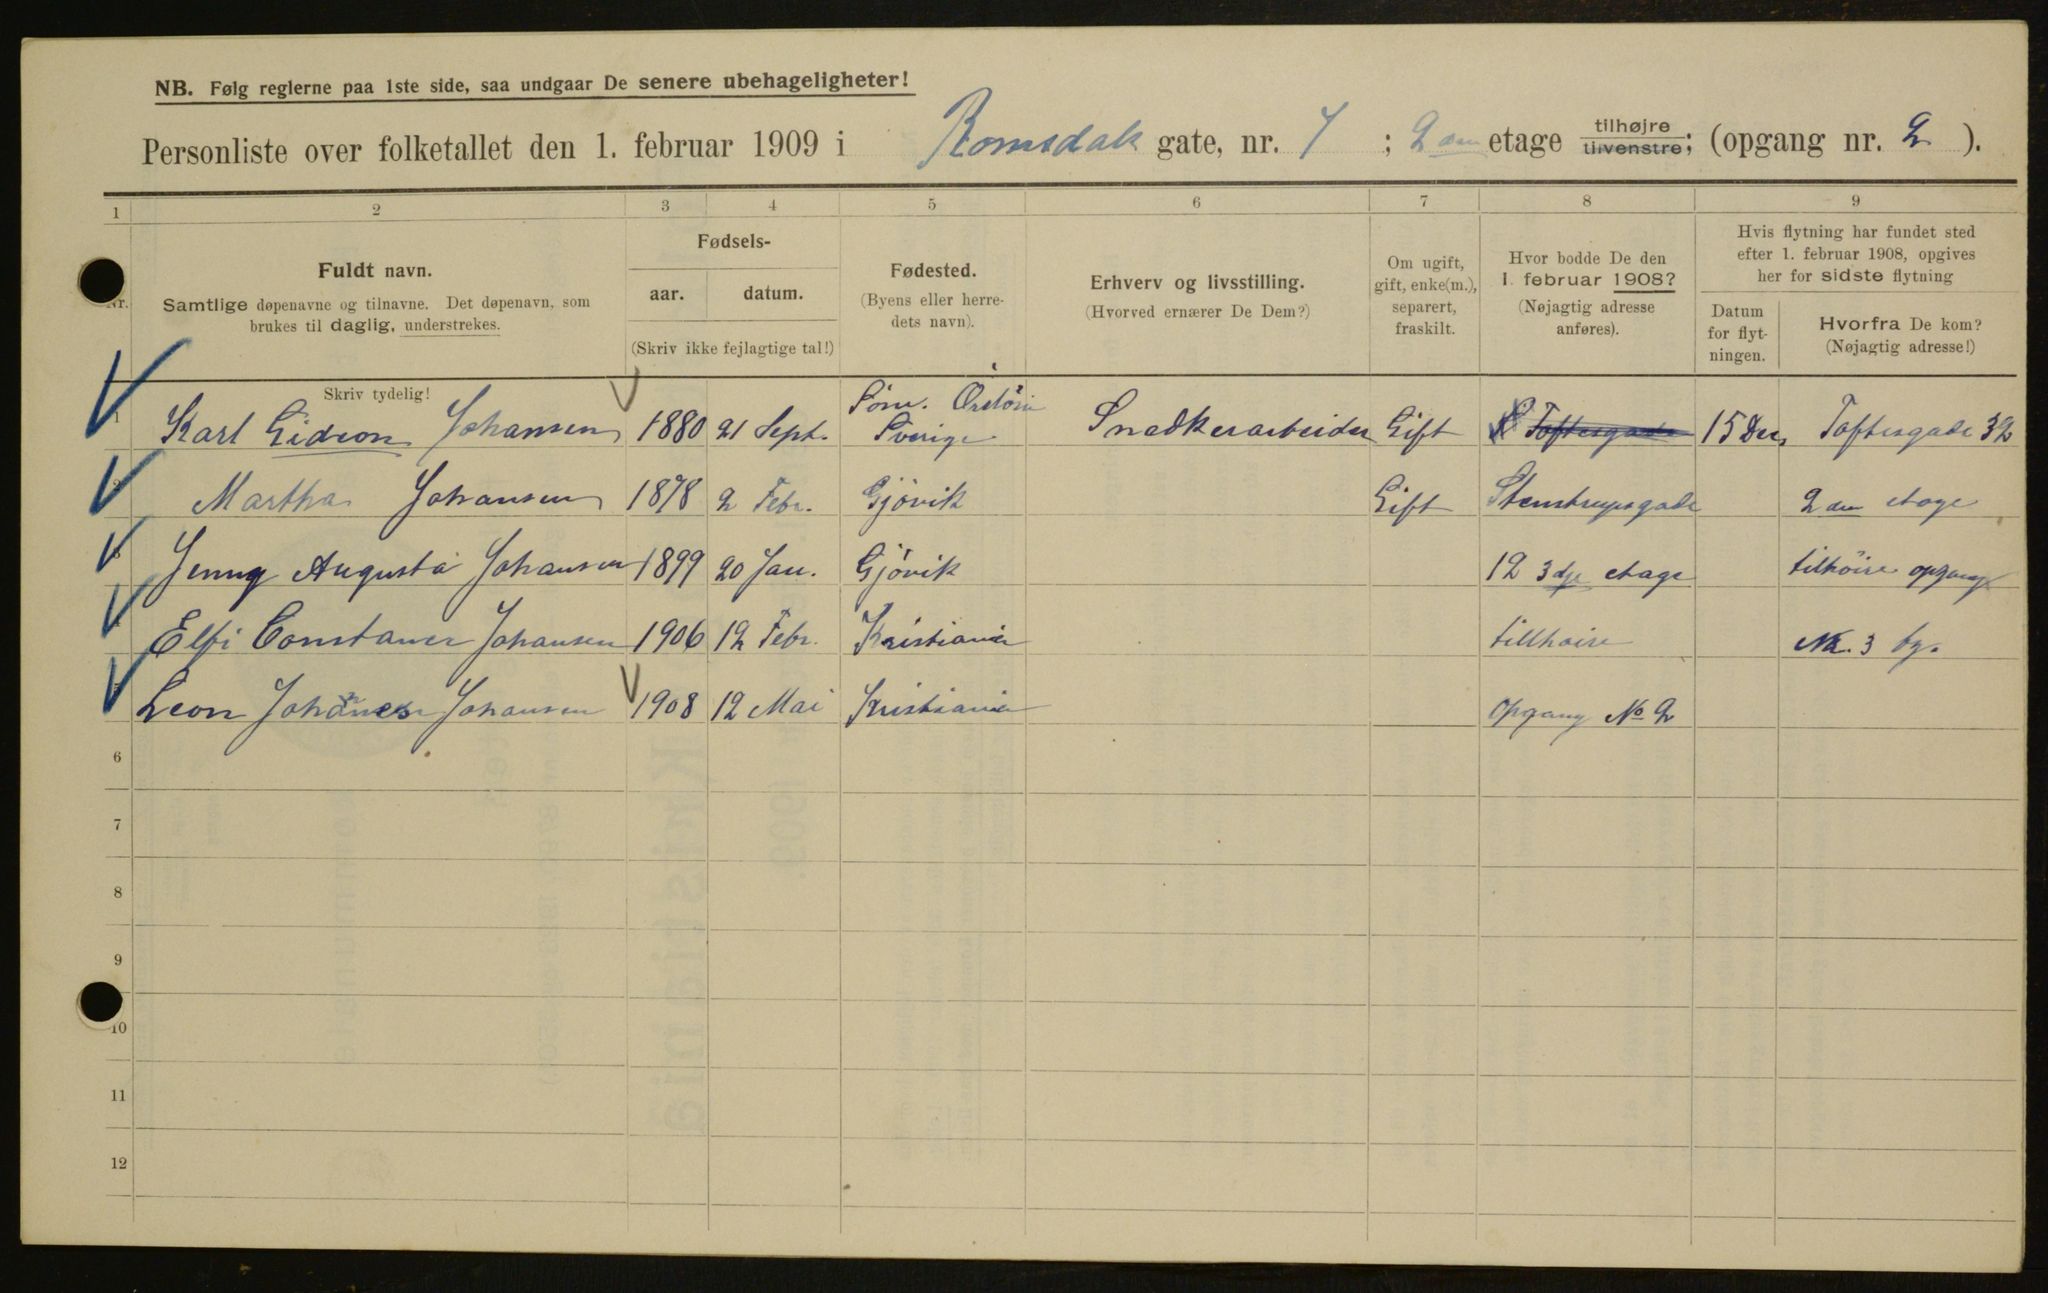 NB. Følg reglerne paa 1ste side, saa undgaar De senere ubehageligheter!
Personliste over folketallet den 1. februar 1909 i Romsdals gate, nr. 7 ; 2den etage tilhøjre tilvenstre; (opgang nr. 2 ).
1 2 3 4 5 6 7 8 9
Nr.
Fuldt navn.
Samtlige døpenavne og tilnavne. Det døpenavn, som
brukes til daglig, understrekes.
Skriv tydelig!
Fødsels-
aar. datum.
(Skriv ikke fejlagtige tal!)
Fødested.
(Byens eller herre-
dets navn).
Erhverv og livsstilling.
(Hvorved ernærer De Dem?)
Om ugift,
gift, enke(m.),
separert,
fraskilt.
Hvor bodde De den
1. februar 1908?
(Nøjagtig adresse
anføres).
Hvis flytning har fundet sted
efter 1. februar 1908, opgives
her for sidste flytning
Datum
for flyt-
ningen.
Hvorfra De kom?
(Nøjagtig adresse!)
1 Karl Gideon Johansen 1880 21 Sept. Sverige Snedkerarbeider Gift Toftesgade 15 Dec. Toftesgade 32
2 Martha Johansen 1878 2 Febr. Gjövik Gift Stenstrupsgade 2den etage
3 Jenny Augusta Johansen 1899 20 Jan. Gjövik 12 3dje etage tilhöire opgang
4 Elfi Constance Johansen 1906 12 Febr. Kristiania tillhoire No. 3 by.
5 Leon Johanes Johansen 1908 12 Mai Kristiania opgang No 2
6
7
8
9
10
11
12